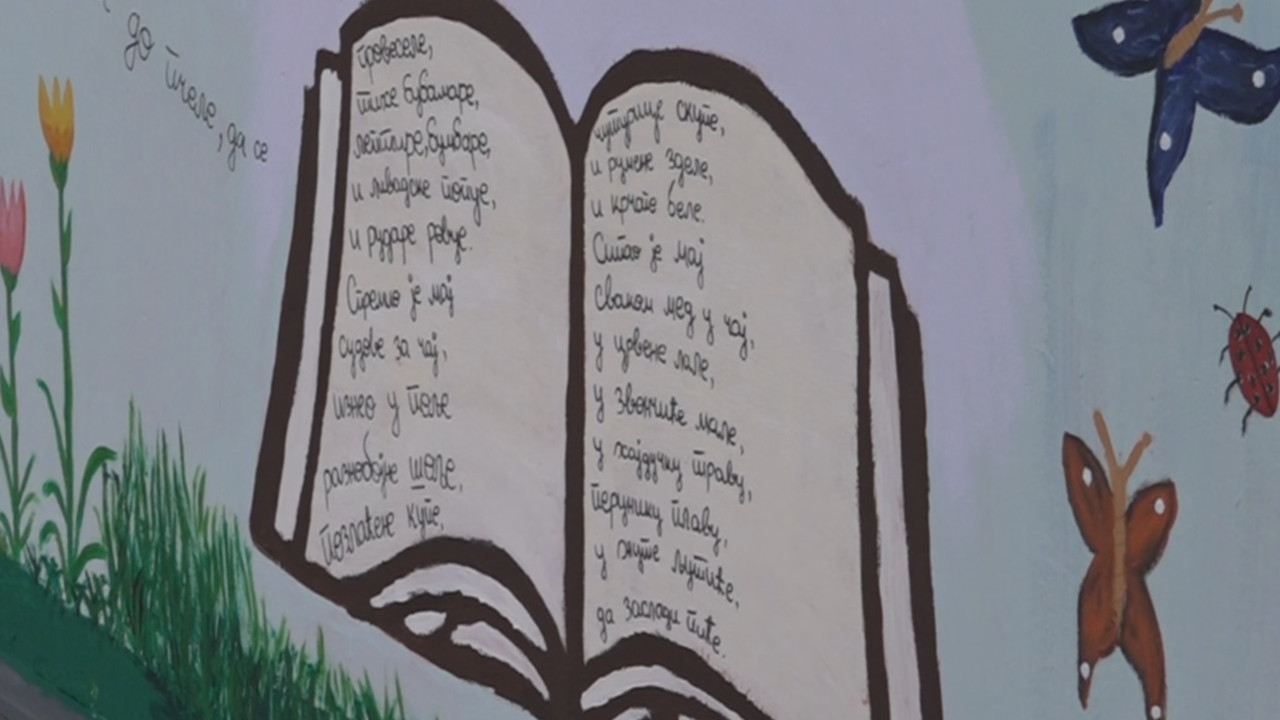 до пчеле, да се
провеселе,
тихе бубамаре,
лептире, бумбаре,
и ливадске попце,
и рударе ровце.
Спремио је мај
судове за чај,
изнео у поље
разнобојне шоље,
позлаћене купе,
путунице скупе,
и румене зделе,
и крчаго беле.
Сипао је мај
сваком мед у чај,
у црвене лале,
у звончиће мале,
у хајдучку траву,
перунику плаву,
у жуте љутиће,
да заслади пиће.